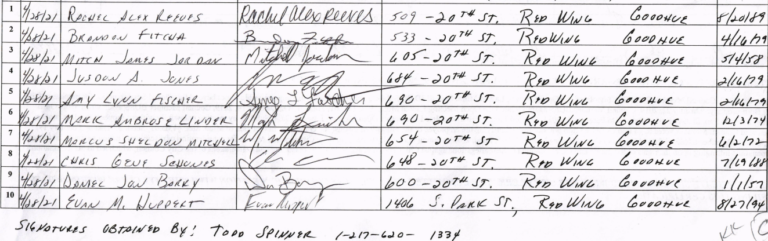 1 4/28/21 RACHEL ALEX REEVES Rachel Alex Reeves 509-20TH ST. RED WING GOODHUE 8/20/89
2 4/28/21 BRANDON FITCHA 533-20TH ST. RED WING GOODHUE 4/16/79
3 4/28/21 MITCH JAMES JORDAN 605-20TH ST. RED WING GOODHUE 5/4/58
4 4/28/21 JUSDON A. JONES 684-20TH ST. RED WING GOODHUE 2/16/79
5 4/28/21 AMY LYNN FISCHER 690-20TH ST. RED WING GOODHUE 2/16/79
6 4/28/21 MARK AMBROSE LINDER 690-20TH ST. RED WING GOODHUE 12/3/74
7 4/28/21 MARCUS SHELDON MITCHELL 654-20TH ST. RED WING GOODHUE 6/2/72
8 4/28/21 CHRIS GENE 648-20TH ST. RED WING GOODHUE 7/19/88
9 4/28/21 DANIEL JON BARRY 600-20TH ST. RED WING GOODHUE 1/1/57
10 4/28/21 EVAN M. HUPPERT 1406 S. PARK ST, RED WING GOODHUE 8/27/94
SIGNATURES OBTAINED BY: TODD SPINNER 1-217-620-1334